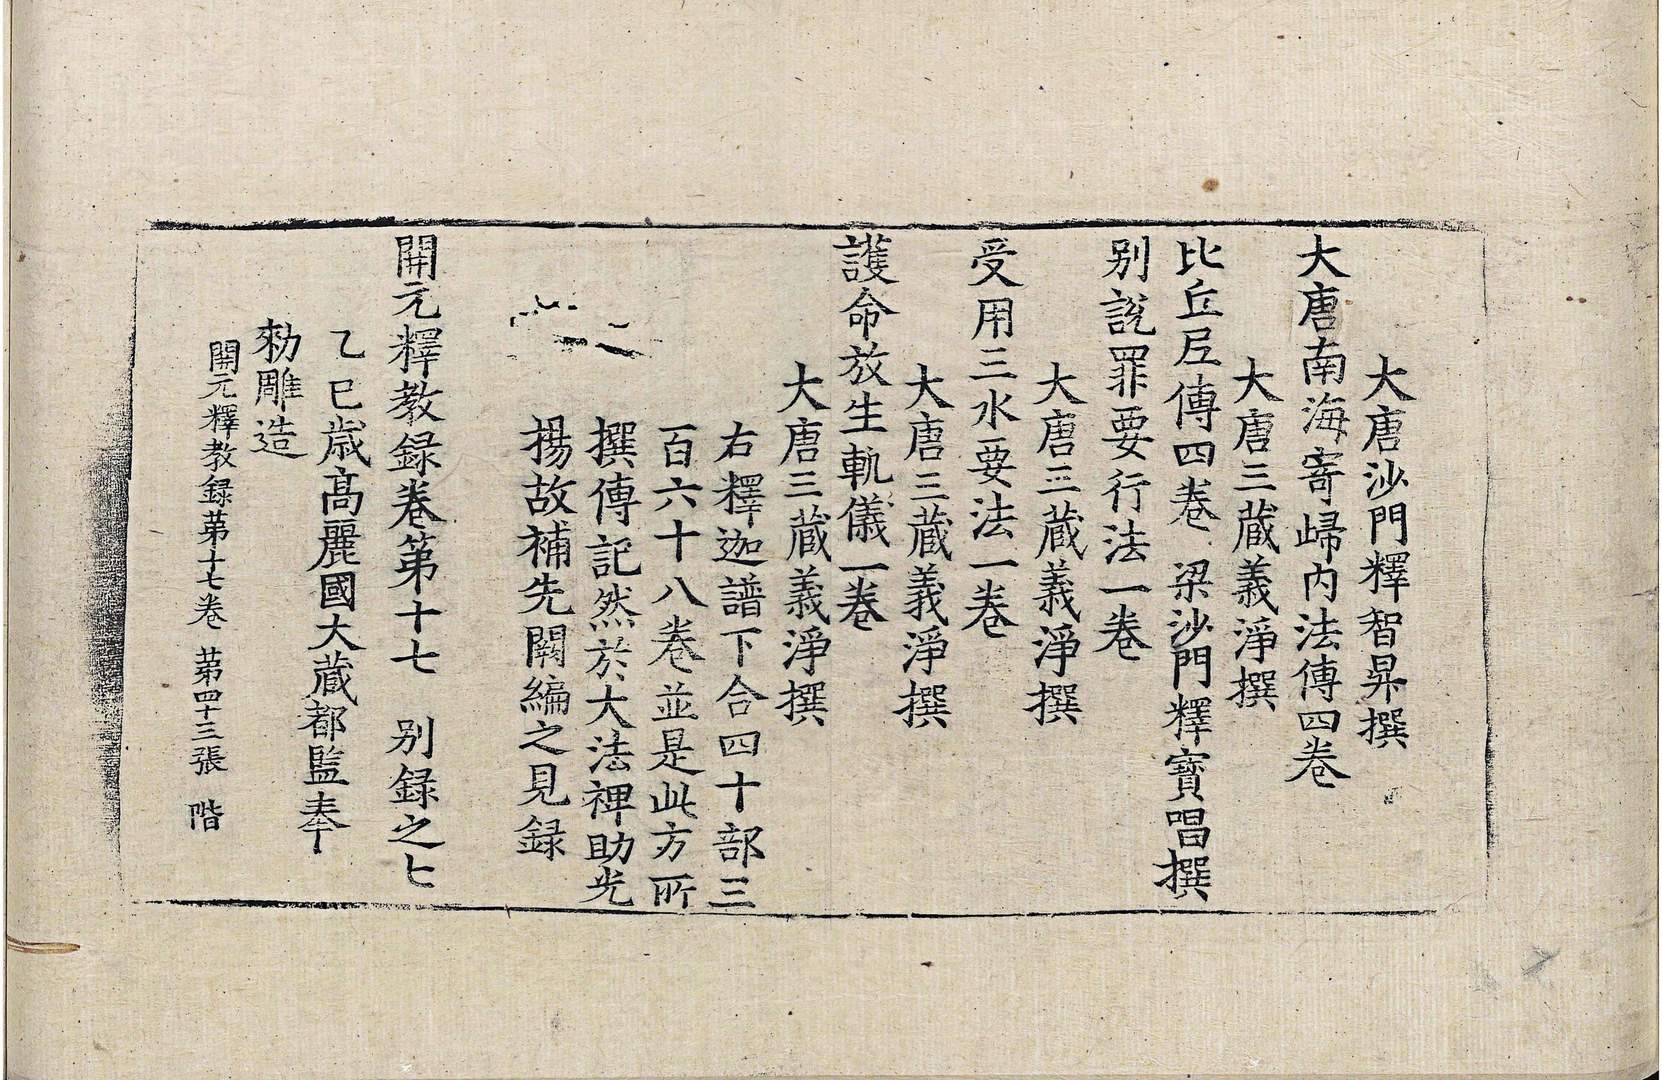 大唐沙門釋智昇撰
大唐南海寄歸內法傳四卷
大唐三藏義淨撰
比丘尼傳四卷 梁沙門釋寶唱撰
別說罪要行法一卷
大唐三藏義淨撰
受用三水要法一卷
大唐三藏義淨撰
護命放生軌儀一卷
大唐三藏義淨撰
右釋迦譜下合四十部三
百六十八卷並是此方所
撰傳記然於大法裨助光
揚故補先闕編之見錄
開元釋教錄卷第十七 別錄之七
乙巳歲高麗國大藏都監奉
勑雕造
開元釋教錄第十七卷 第四十三張 階